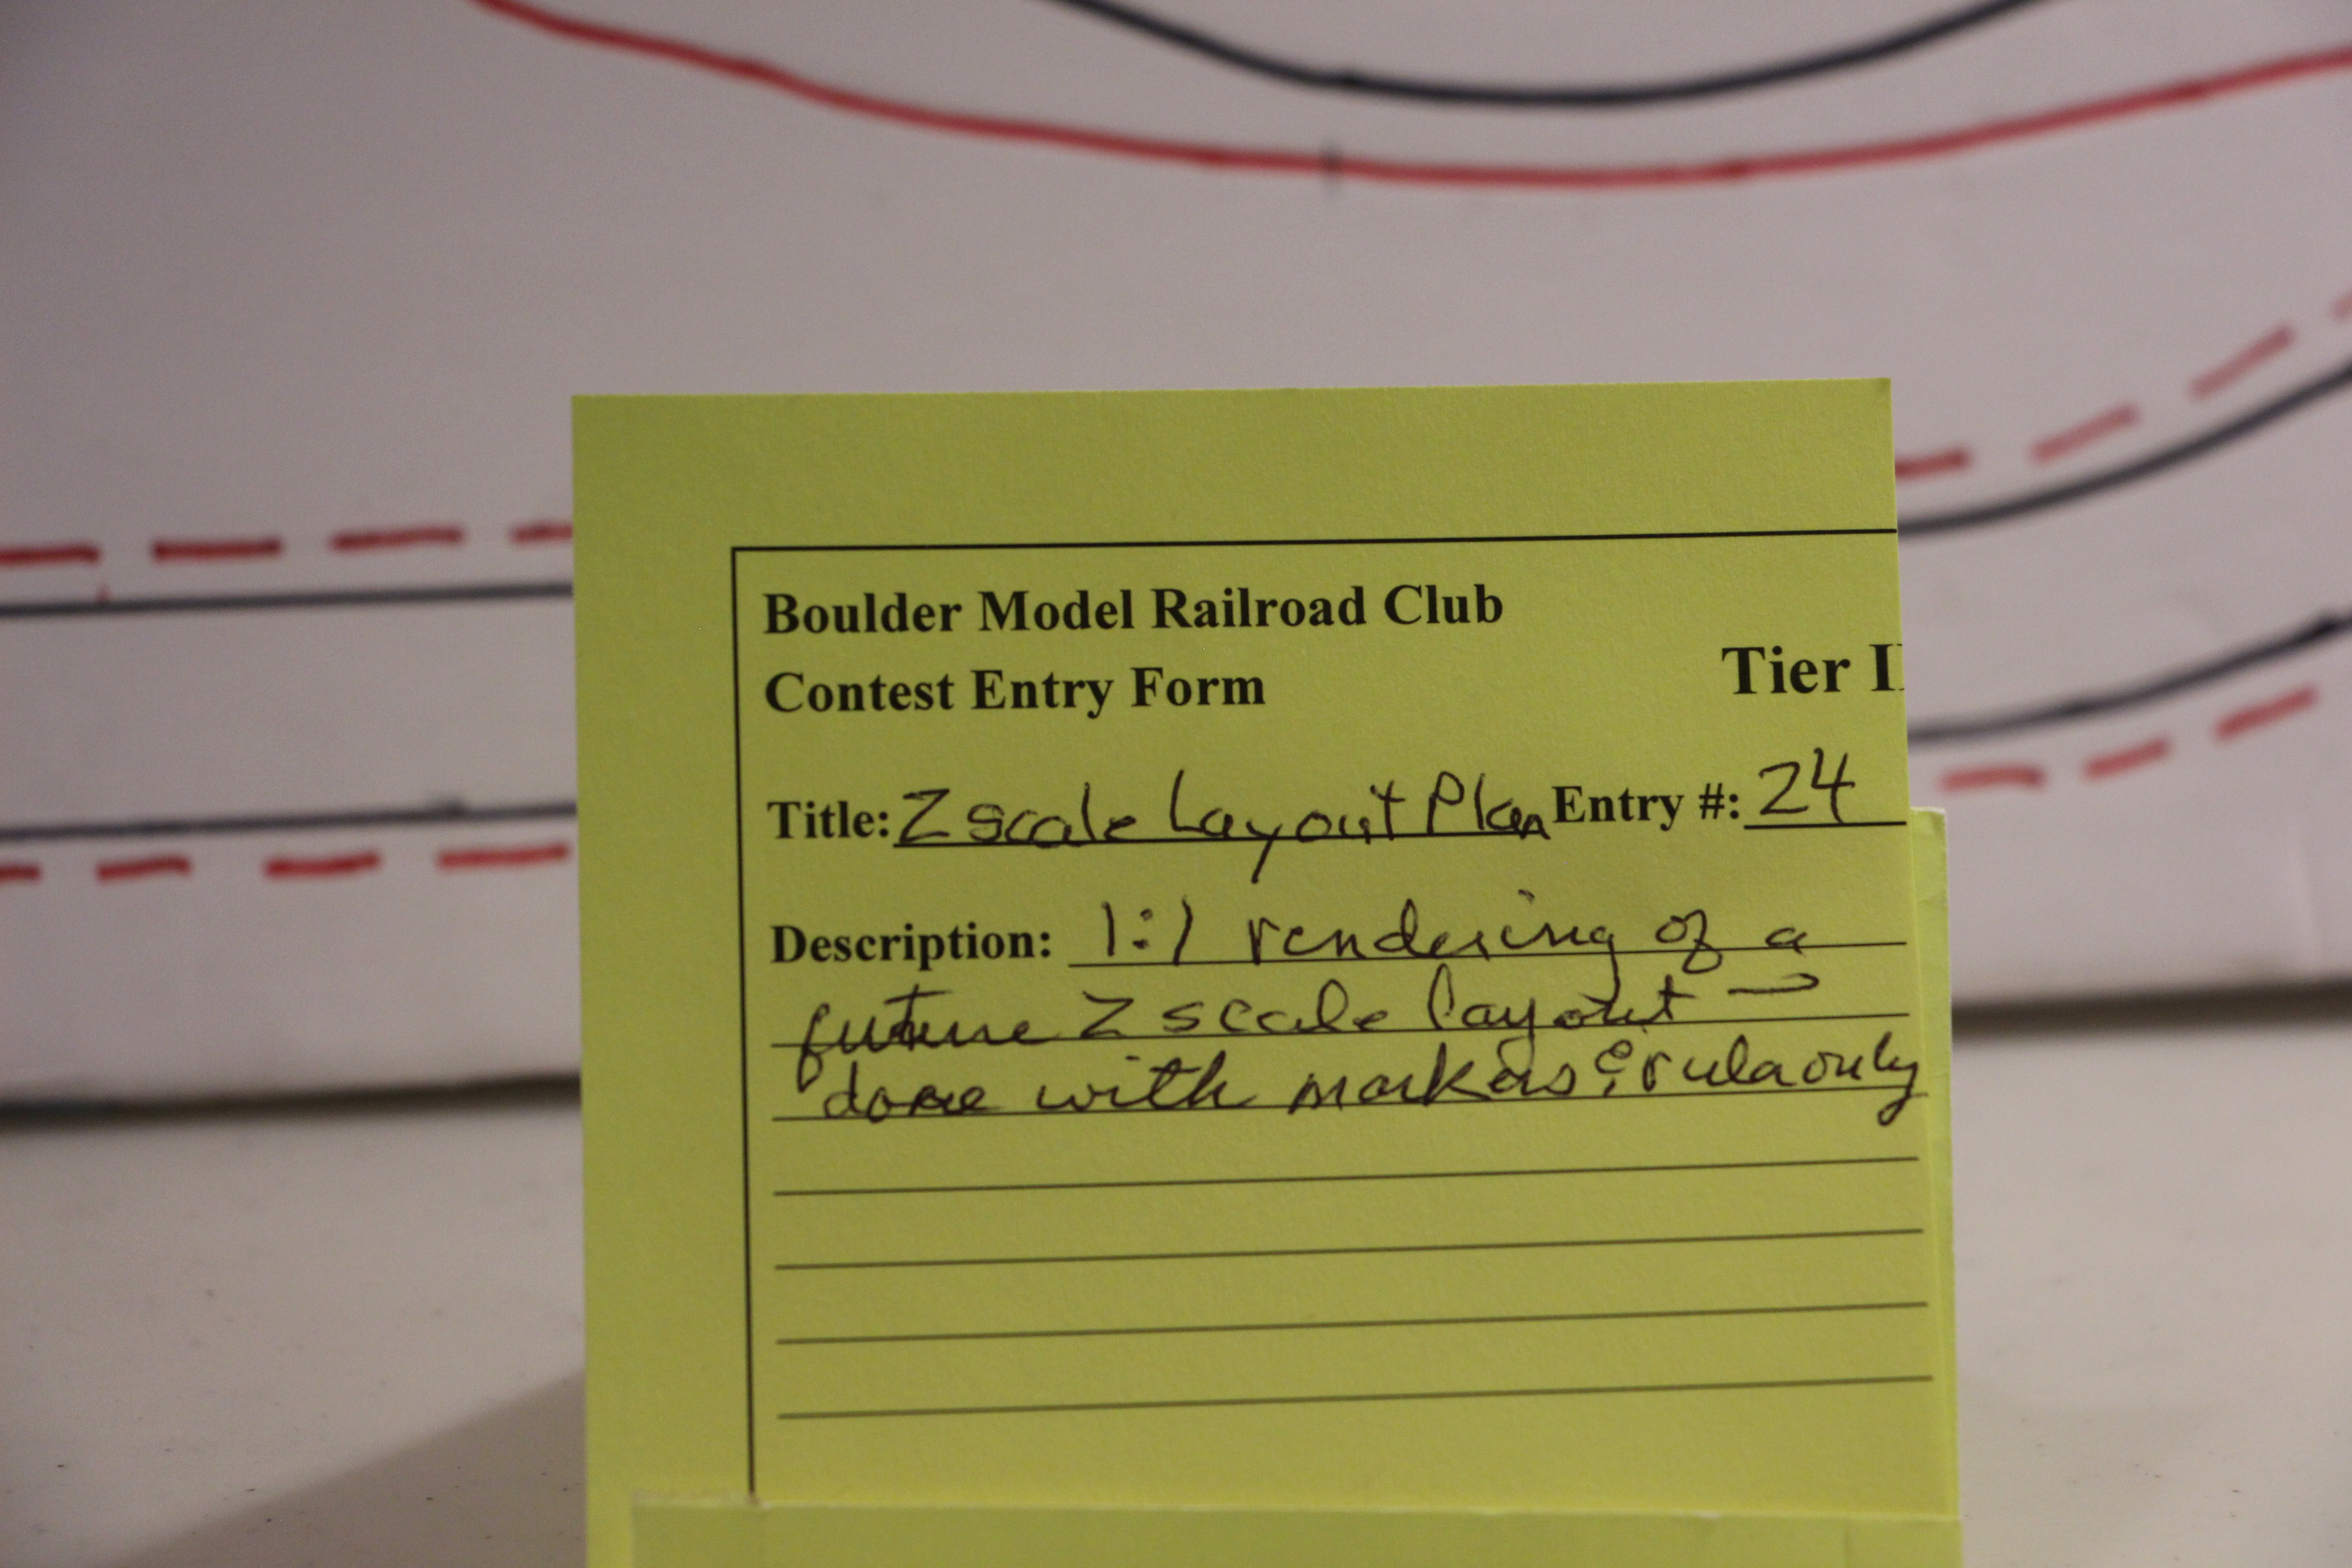 Boulder Model Railroad Club
Contest Entry Form
Tier II
Title: Z scale Layout Plan Entry #: 24
Description: 1:1 rendering of a
future Z scale layout –
done with markers & ruler only